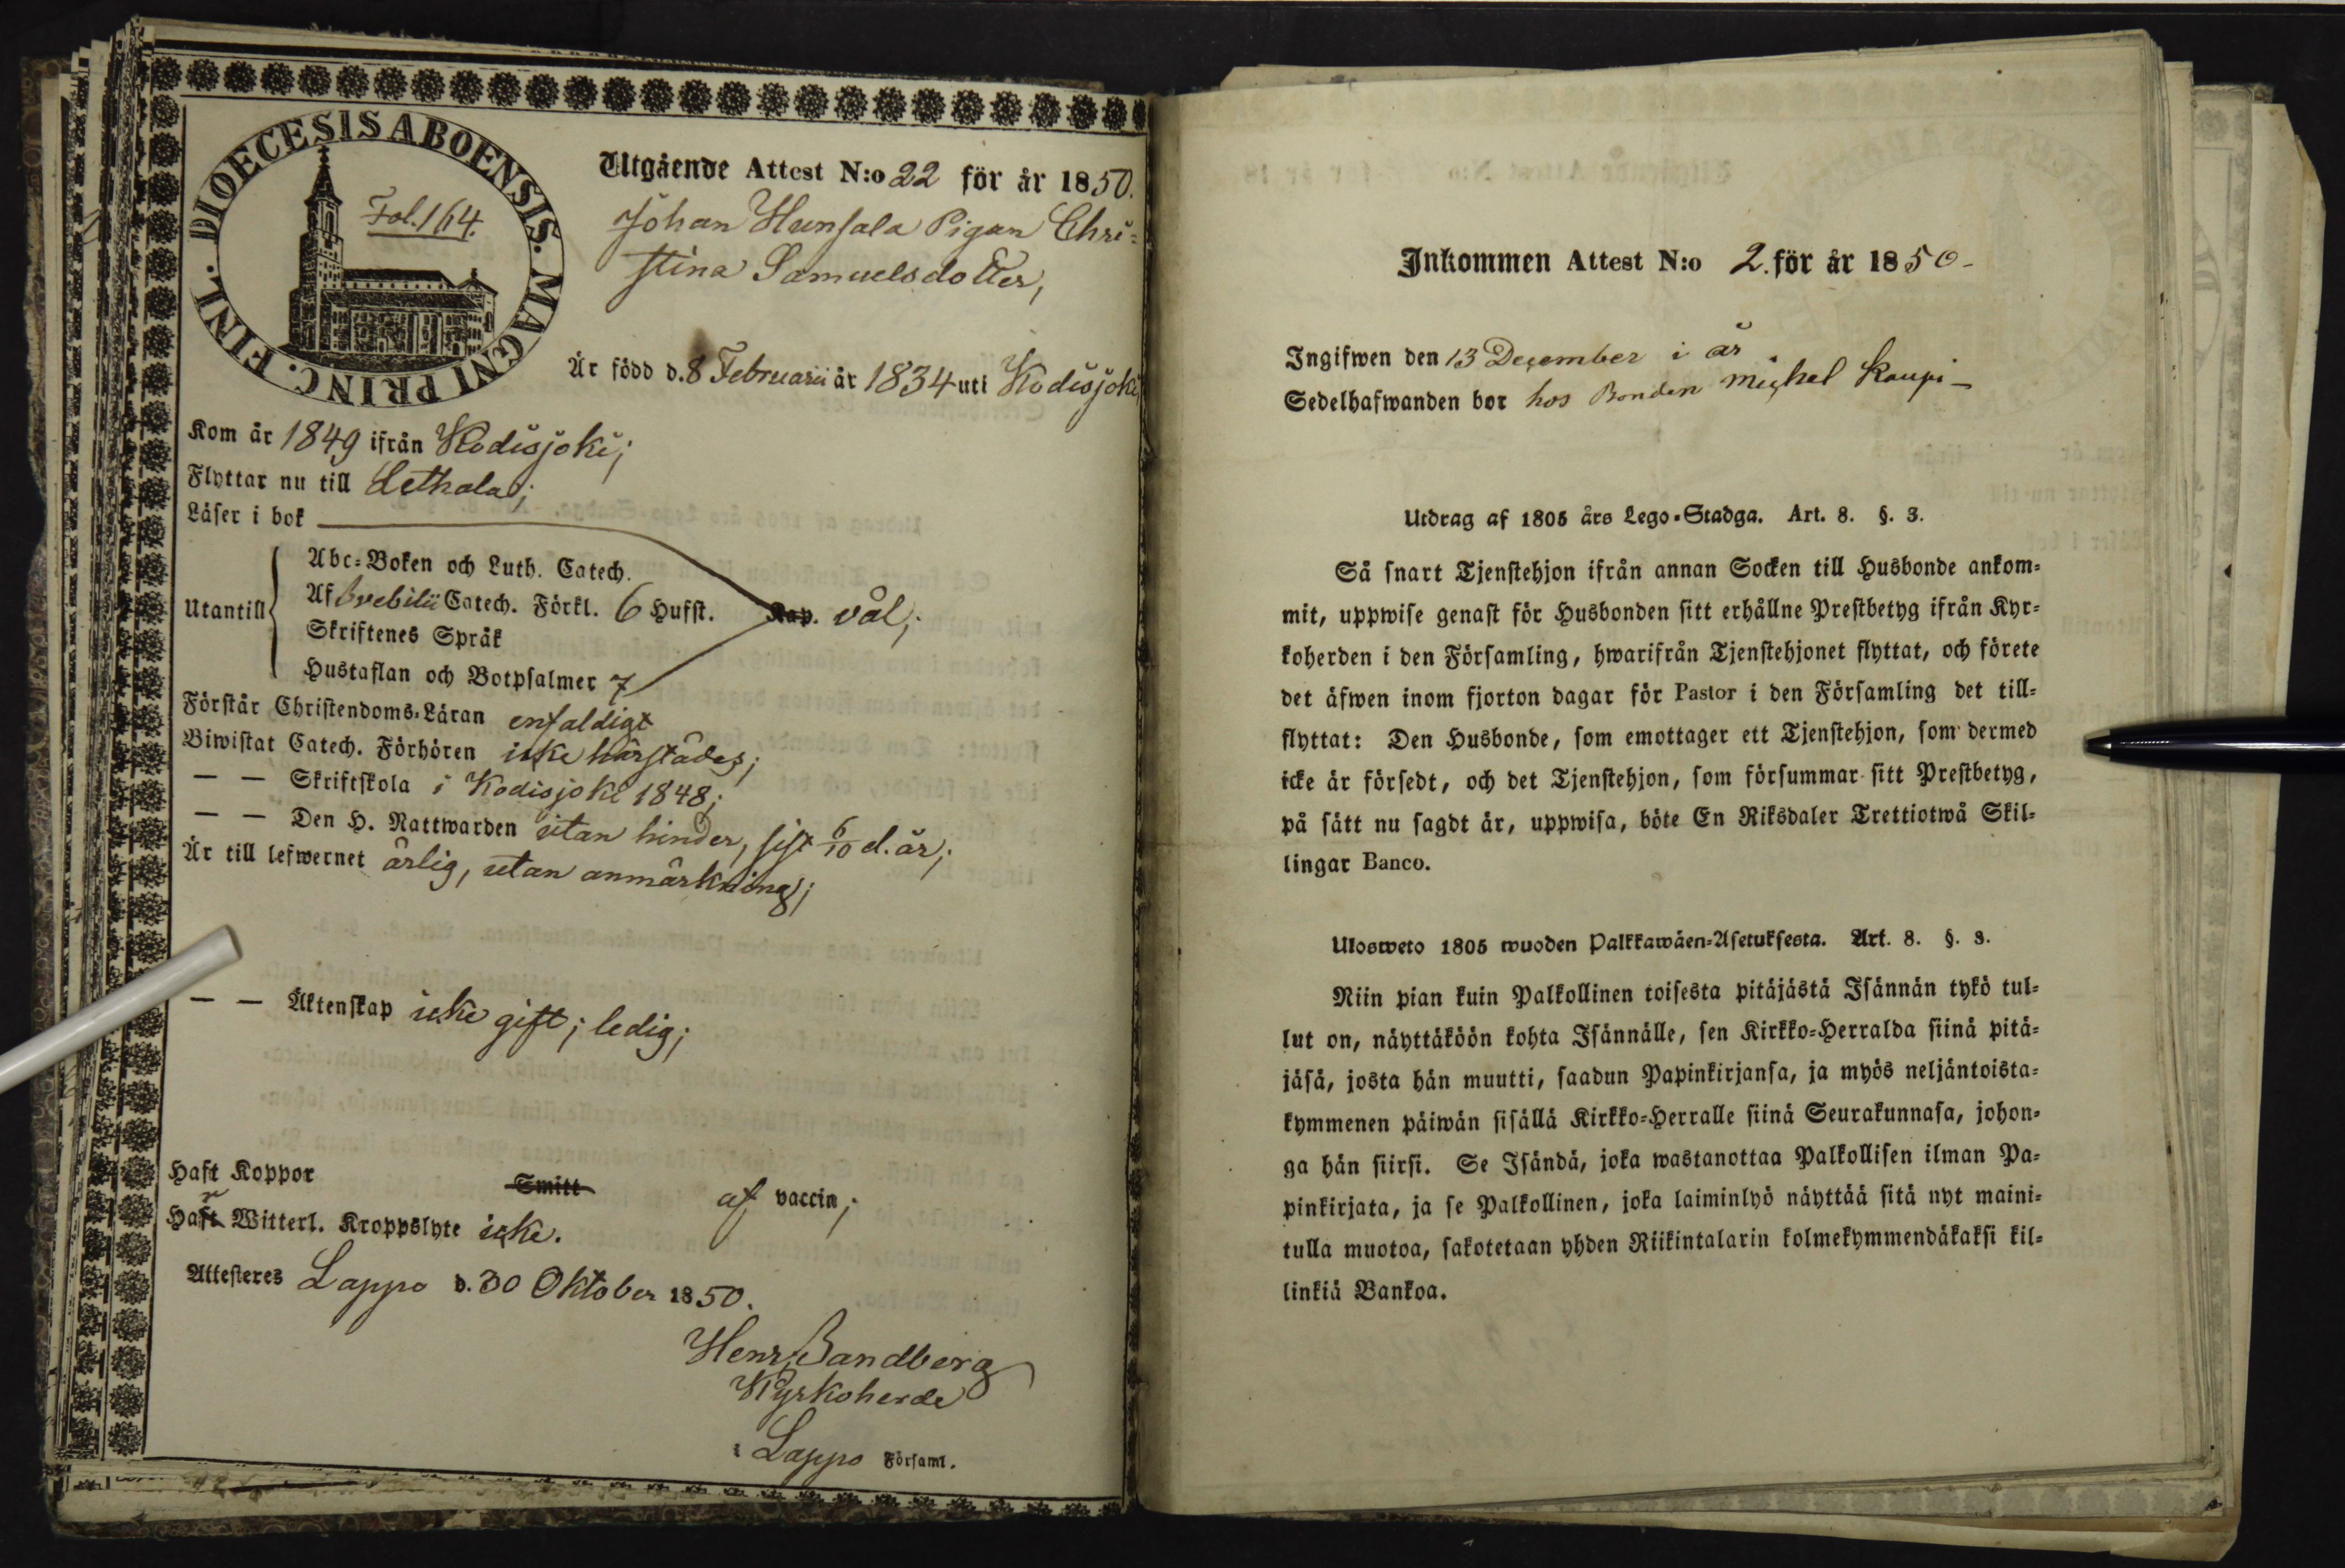 DIOECESIS ABOENSIS. MAGNI PRINC. FINL.
Fol. 164.
Utgående Attest N:o 22 för år 1850.
Johan Hunsala Pigan Chri=
stina Samuelsdotter,
Är född d. 8 Februarii år 1834 uti Kodisjoki
Kom år 1849 ifrån Kodisjoki;
Flyttar nu till Lethala;
Läser i bok
Utantill
Abc=Boken och Luth. Catech.
Af Svebilii Catech. Förkl. 6 Hufst. Kap. väl;
Skriftenes Språk
Hustaflan och Botpsalmer 7
Förstår Christendoms=Läran enfaldigt
Biwistat Catech. Förhören icke härstädes;
— — Skriftskola i Kodisjoki 1848;
— — Den H. Nattwarden utan hinder, sist 6/10 d. år;
Är till lefwernet ärlig, utan anmärkning;
— — Äktenskap icke gift; ledig;
Haft Koppor Smitt af vaccin;
Har Witterl. Kroppslyte icke.
Attesteres Lappo d. 30 Oktober 1850.
Henr. Sandberg
Kyrkoherde
i Lappo Församl.
Inkommen Attest N:o 2. för år 1850-
Ingifwen den 13 December i år
Sedelhafwanden bor hos Bonden Michel Kaupi-
Utdrag af 1805 års Lego=Stadga. Art. 8. §. 3.
Så snart Tjenstehjon ifrån annan Socken till Husbonde ankom=
mit, uppwise genast för Husbonden sitt erhållne Prestbetyg ifrån Kyr=
koherden i den Församling, hwarifrån Tjenstehjonet flyttat, och förete
det äfwen inom fjorton dagar för Pastor i den Församling det till=
flyttat: Den Husbonde, som emottager ett Tjenstehjon, som dermed
icke är försedt, och det Tjenstehjon, som försummar sitt Prestbetyg,
på sätt nu sagdt är, uppwisa, böte En Riksdaler Trettiotwå Skil=
lingar Banco.
Ulosweto 1805 wuoden Palkkawäen=Asetuksesta. Art. 8. §. 3.
Niin pian kuin Palkollinen toisesta pitäjästä Isännän tykö tul=
lut on, näyttäköön kohta Isännälle, sen Kirkko=Herralda siinä pitä=
jäsä, josta hän muutti, saadun Papinkirjansa, ja myös neljäntoista=
kymmenen päiwän sisällä Kirkko=Herralle siinä Seurakunnasa, johon=
ga hän siirsi. Se Isändä, joka wastanottaa Palkollisen ilman Pa=
pinkirjata, ja se Palkollinen, joka laiminlyö näyttää sitä nyt maini=
tulla muotoa, sakotetaan yhden Riikintalarin kolmekymmendäkaksi kil=
linkiä Bankoa.